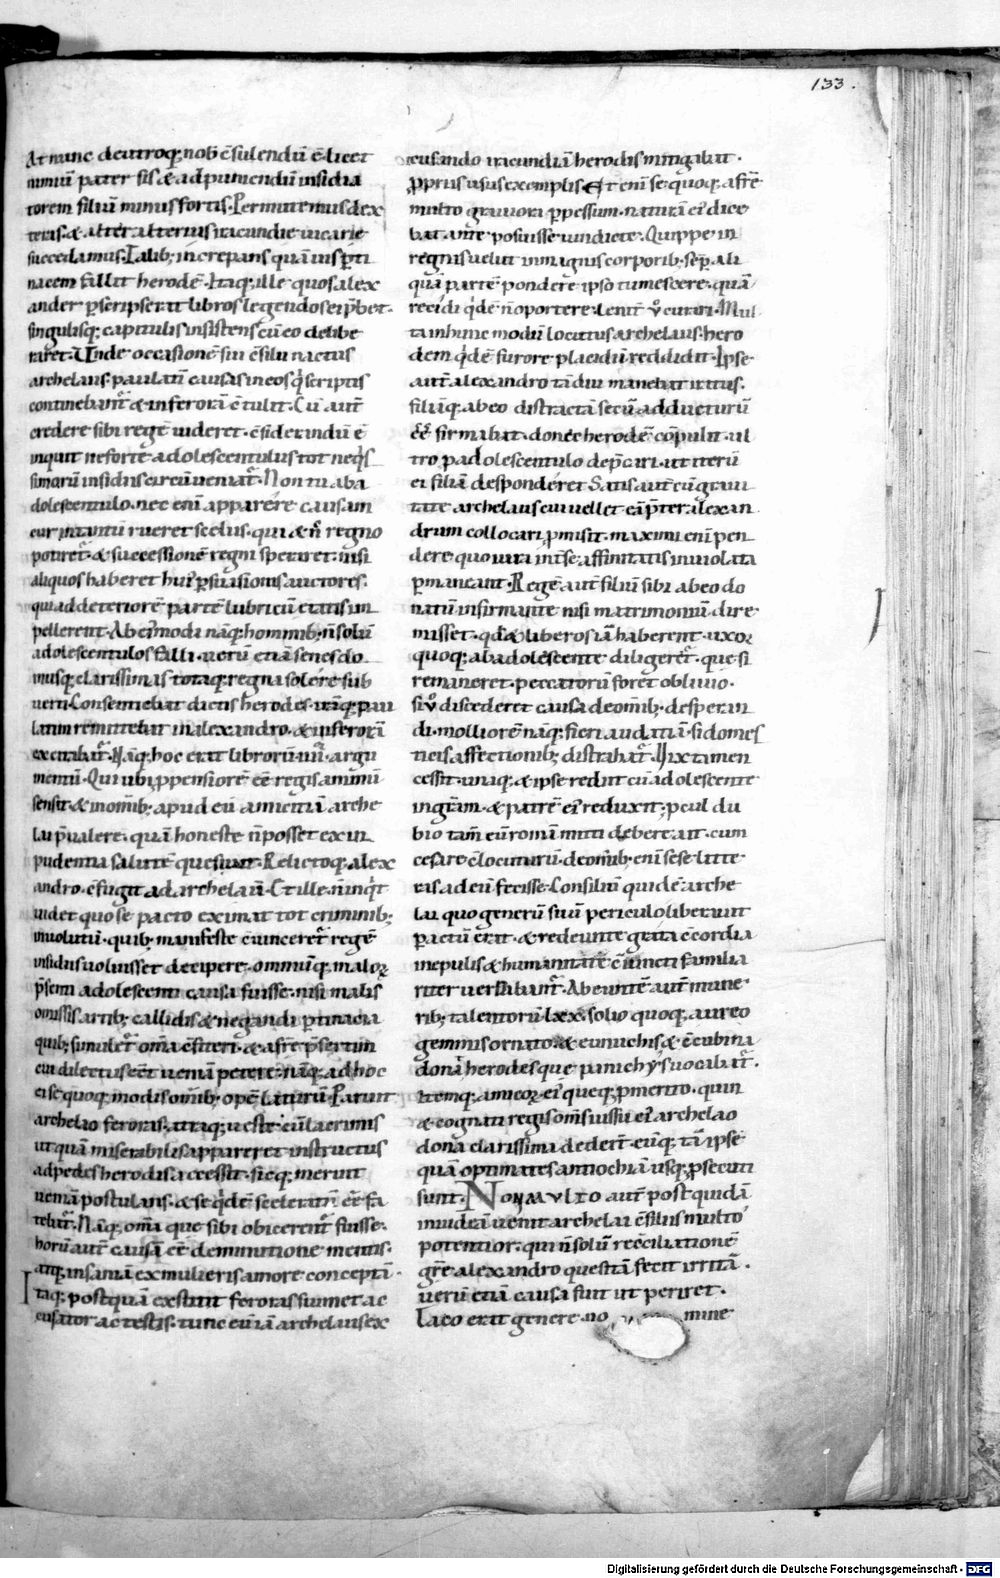 133.
At nunc de utroq; nob̄ c̄sulendū ē licet
nimiū pater sis & ad puniendū insidia
torem filiū minus fortis. Permutemus dex
teras. & alter alterius iracundie uicarie
succedamus. Talib; increpans quāuis p̄ti
nacem fallit herodē. Itaq; ille quos alex
ander p̄scripserat libros legendos ei p̄bet.
singulisq; capitulis insistens cū eo delibe
raret. Unde occasionē sui c̄silii nactus
archelaus. paulatī causas in eos q̄ scriptis
continebant̄ & in ferorā c̄tulit. Cū aut̄
credere sibi regē uideret. c̄siderandū ē
inquit ne forte adolescentulus tot neq̄s
simarū insidiis circūueniat̄. Non tu ab a
dolescentulo. nec enī apparere causam
cur in tantū rueret scelus. qui & n̄ regno
potiret̄. & successionē regni speraret. nisi
aliquos haberet hui᾽ p̄suasionis auctores.
qui ad deteriorē partē lubricū etatis im
pellerent. Ab ei᾽modi nāq; hominib; n̄ solū
adolescentulos falli. uerū etiā senes do
musq; clarissimas totaq; regna solere sub
uerti. Consentiebat dictis herodes. itaq; pau
latim remittebat in alexandro. & in ferorā
excitabat̄. Nāq; hoc erat librorū .iiii. argu
mentū. Qui ubi p̄pensiorē c̄e regis animū
sensit. & in omib; apud eū amicitiā arche
lai p̄ualere. quā honeste n̄ posset ex in
pudentia salutē quesiuit. Relictoq; alex
andro. c̄fugit ad archelaū. Et ille n̄ inq̄t
uidet quo se pacto eximat tot criminib;
inuolutū. quib; manifeste c̄uinceret̄ regē
insidiis uoluisset decipere. omniūq; malor̄
p̄senti adolescenti causa fuisse. nisi malis
omissis artib; callidis & negandi p̄tinacia
quib; simulet̄ om̄a c̄fiteri. & a fr̄e p̄sertim
cui dilectus eēt ueniā petere. nāq; ad hoc
ei se quoq; modis om̄ib; opē laturū. Paruit
archelao feroras. atraq; ueste cū lacrimis
ut quā miserabilis appareret instructus
ad pedes herodis accessit. sicq; meruit
ueniā postulans. & se q̄dē sceleratū c̄e fa
tebat̄. Nāq; om̄a que sibi obicerent̄ fuisse.
horū aut̄ causā c̄e deminutione mentis.
atq; insaniā ex mulieris amore conceptā.
Itaq; postquā exstitit feroras suimet ac
cusator ac testis. tunc etiā archelaus ex
cusando iracundiā herodis mitigabat.
p̄priis usus exemplis. Et enī se quoq; a fr̄e
multo grauiora p̄pessum. naturā ei᾽ dice
bat ante posuisse uindicte. Quippe in
regnis uelut in magnis corporib; sep̄. ali
quā partē pondere ipso tumescere. quā
recidi q̄dē n̄ oportere. lenit̄ v̊ curari. Mul
ta in hunc modū locutus archelaus. hero
dem q̄dē furore placidū reddidit. Ipse
aut̄ alexandro tā diu manebat iratus.
filiāq; ab eo distractā secū adducturū
c̄e firmabat. donec herodē cōpulit. ul
tro p̄ adolescentulo dep̄cari. ut iterū
ei filiā desponderet. Satis aut̄ cū graui
tate archelaus cui uellet c̄ p̄ter alexan
drum collocari p̄misit. maximi enī pen
dere quo iura int̄ se affinitatis inuiolata
p̄maneant. Rege aut̄ filiū sibi ab eo do
natū infirmante nisi matrimoniū dire
misset. q̄d & liberos iā haberent. uxor
quoq; ab adolescente diligeret̄. que si
remaneret. peccatorū foret obliuio.
si v̊ discederet causa de omib; desperan
di. molliorē nāq; fieri audatiā. si domes
ticis affectionib; distrahat̄. Vix tamen
cessit. unaq; & ipse redit cū adolescente
in gr̄am. & patrē ei᾽ reduxit; p̄cul du
bio tam̄ eū romā mitti debere. ait. cum
cesare c̄locuturū. de om̄ib; enī sese litte
ris ad eū fecisse. Consiliū quidē arche
lai quo generū suū periculo liberauit
p̄actū erat. & redeunte gratia c̄cordia
in epulis & humanitate c̄iuncti familia
riter uersabant̄. Abeuntē aut̄ mune
rib; talentorū .lxx. solio quoq; aureo
gemmis ornato. & eunuchis & c̄cubina
donat̄ herodes que pannichys uocabat̄.
Itemq; amicor̄ ei᾽ queq; p̄ merito. quin
& cognati regis om̄s iussu ei᾽ archelao
dona clarissima dedert̄. eūq; tā ipse
quā optimates antiochiā usq; p̄secuti
sunt. Non multo aut̄ post quidā
in iudeā uenit archelai c̄siliis multo
potentior. qui n̄ solū rec̄ciliationē
gr̄e alexandro quesitā fecit irritā.
uerū etiā causa fuit ut periret.
Laco erat genere. no mine
Digitalisierung gefördert durch die Deutsche Forschungsgemeinschaft - DFG